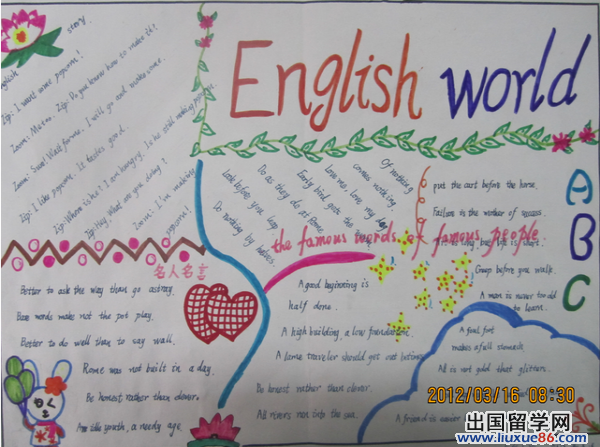 English story
Zip: I want some popcorn!
Zoom: Me too. Zip: Do you know how to make it?
Zoom: Sure! Wait for me. I will go and make some.
Zip: I like popcorn. It tastes good.
Zip: Where is he? I am hungry. Is he still making popcorn?
Zip: Hey! What are you doing?
Zoom: I'm making popcorn!
English world
Of nothing
comes nothing
Love me, love my dog
Early bird gets the
Do as they do at Rome.
Look before you leap
Do nothing by halves.
put the cart before the horse.
Failure is the mother of success.
the famous words of famous people
Creep before you walk.
A man is never too old
to learn.
A
B
C
名人名言
Better to ask the way than go astray.
words make not the pot play.
Better to do well than to say well.
Rome was not built in a day.
Be honest rather than clever.
An idle youth, a needy age.
A good beginning is
half done.
A high building, a low foundation.
A lame traveler should get out betimes.
Be honest rather than clever.
All rivers run into the sea.
A fool
makes a full stomach
All is not gold that glitters.
A friend is easier
2012/03/16 08:30
出国留学网
www.liuxue86.com